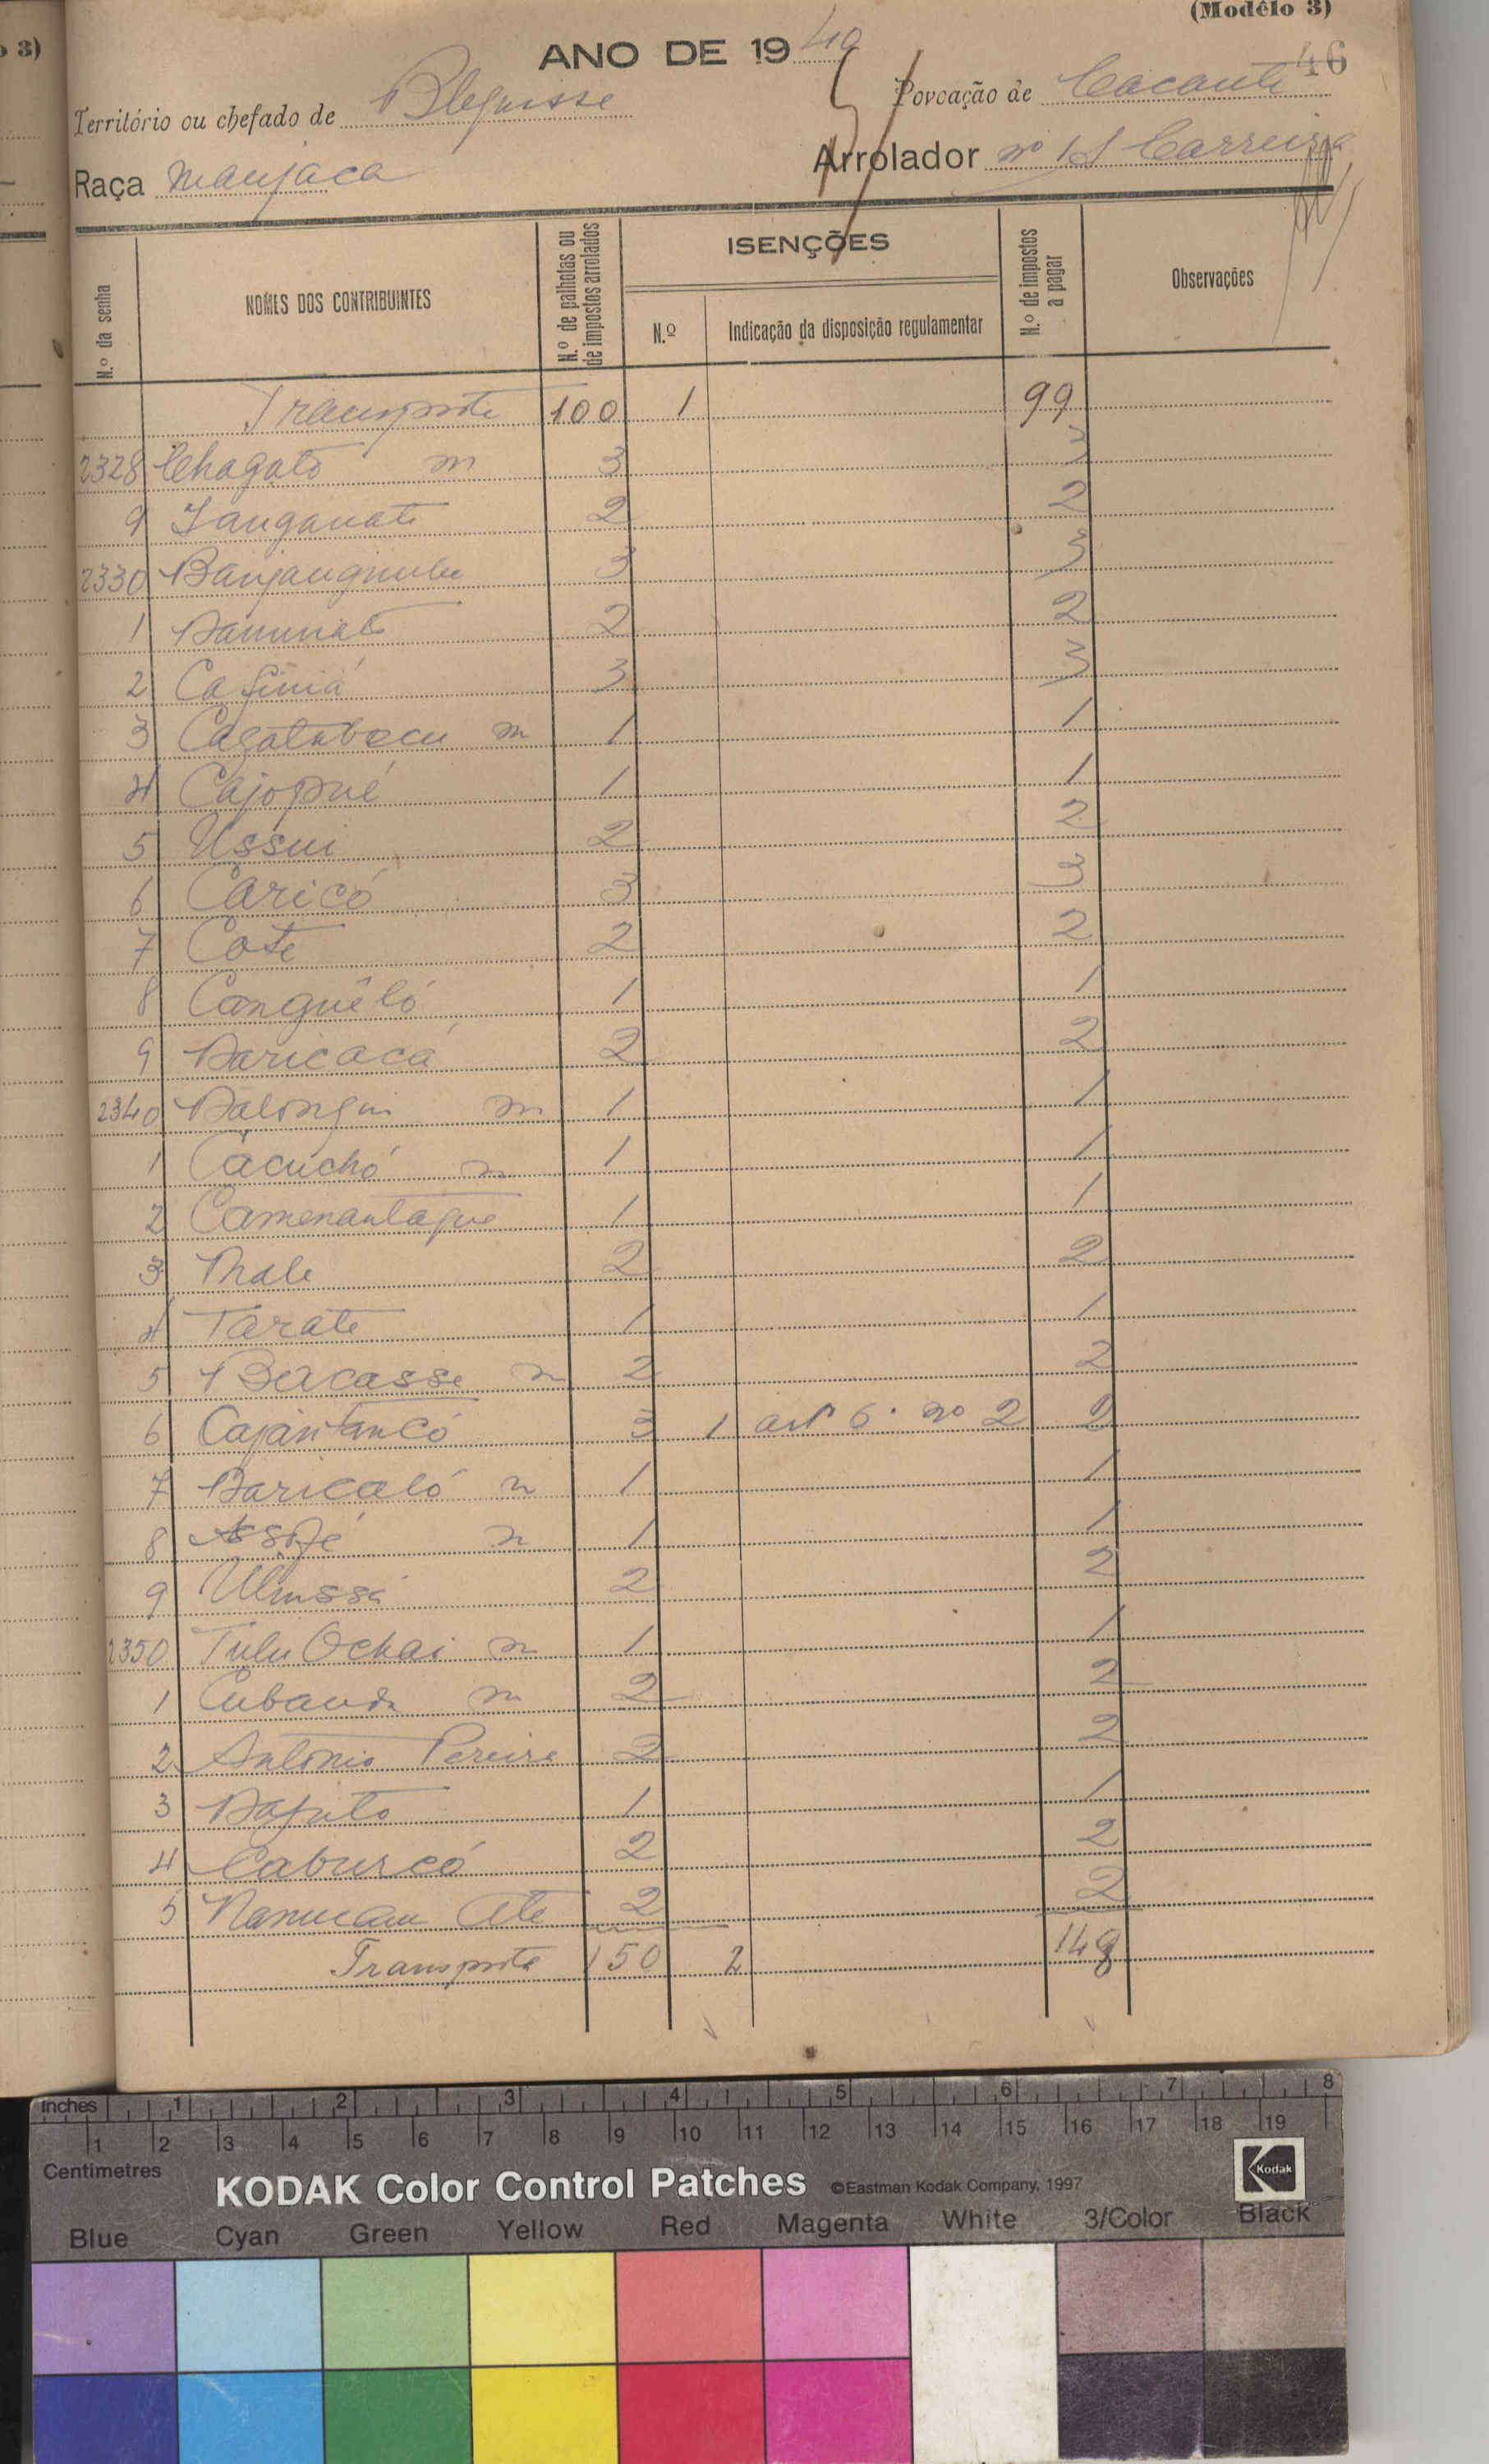 (Modêlo 3)
46
o 3)
ANO DE 1940
Território ou chefado de Bleguisse
Povoação de Cacante
Raça Manjaca
Arrolador nº Carreira
N.º da senha
NOMES DOS CONTRIBUINTES
N.º de palhotas ou de impostos arrolados
ISENÇÕES
N.º
Indicação da disposição regulamentar
N.º de impostos a pagar
Observações
Transporte 100 1 99
2328 Chagato m 3 3
9 Janganate 2 2
2330 3 3
1 2 2
2 Cafiniá 3 3
3 Cagatabacu m 1 1
4 Cajopué 1 1
5 Ussui 2 2
6 Caricó 3 3
7 Cote 2 2
8 Canguêló 1 1
9 Baricacá 2 2
2340 m 1 1
1 Cacuchó m 1 1
2 Camenantaque 1 1
3 Male 2 2
4 Tarate 1 1
5 Bacasse m 2 2
6 3 1 artº 6º nº 2 2
7 Baricaló m 1 1
8 m 1 1
9 2 2
2350 Tulu Ochai m 1 1
1 m 2 2
2 António Pereira 2 2
3 1 1
4 Caburcó 2 2
5 2 2
Transporte 150 2 148
inches 1 2 3 4 5 6 7 8
1 2 3 4 5 6 7 8 9 10 11 12 13 14 15 16 17 18 19
Centimetres
KODAK Color Control Patches ©Eastman Kodak Company, 1997 Kodak
Blue Cyan Green Yellow Red Magenta White 3/Color Black